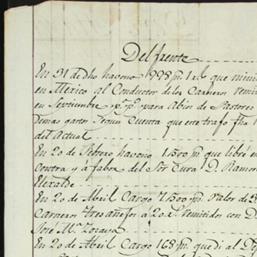 Del frente
En 31 de Dho haveno 998 p.s 1 r.l que
en Mexico al Conductor delos Carneros
en Septiembre pp.o para abio de Pastores
Demas gastos segun Cuenta que este trajo fha
del Actual
En 20 de Febrero haveno 1500 p.s que libré en
Contra y á fabor del Sor Cura D. Ramon
Elizalde
En 20 de Abril Cargo 7500 p.s valor de
Carneros tresañejos á 20 r.s remitidos con D.
José M.a Lozaya
En 20 de Abril Cargo 168 p.s que di al